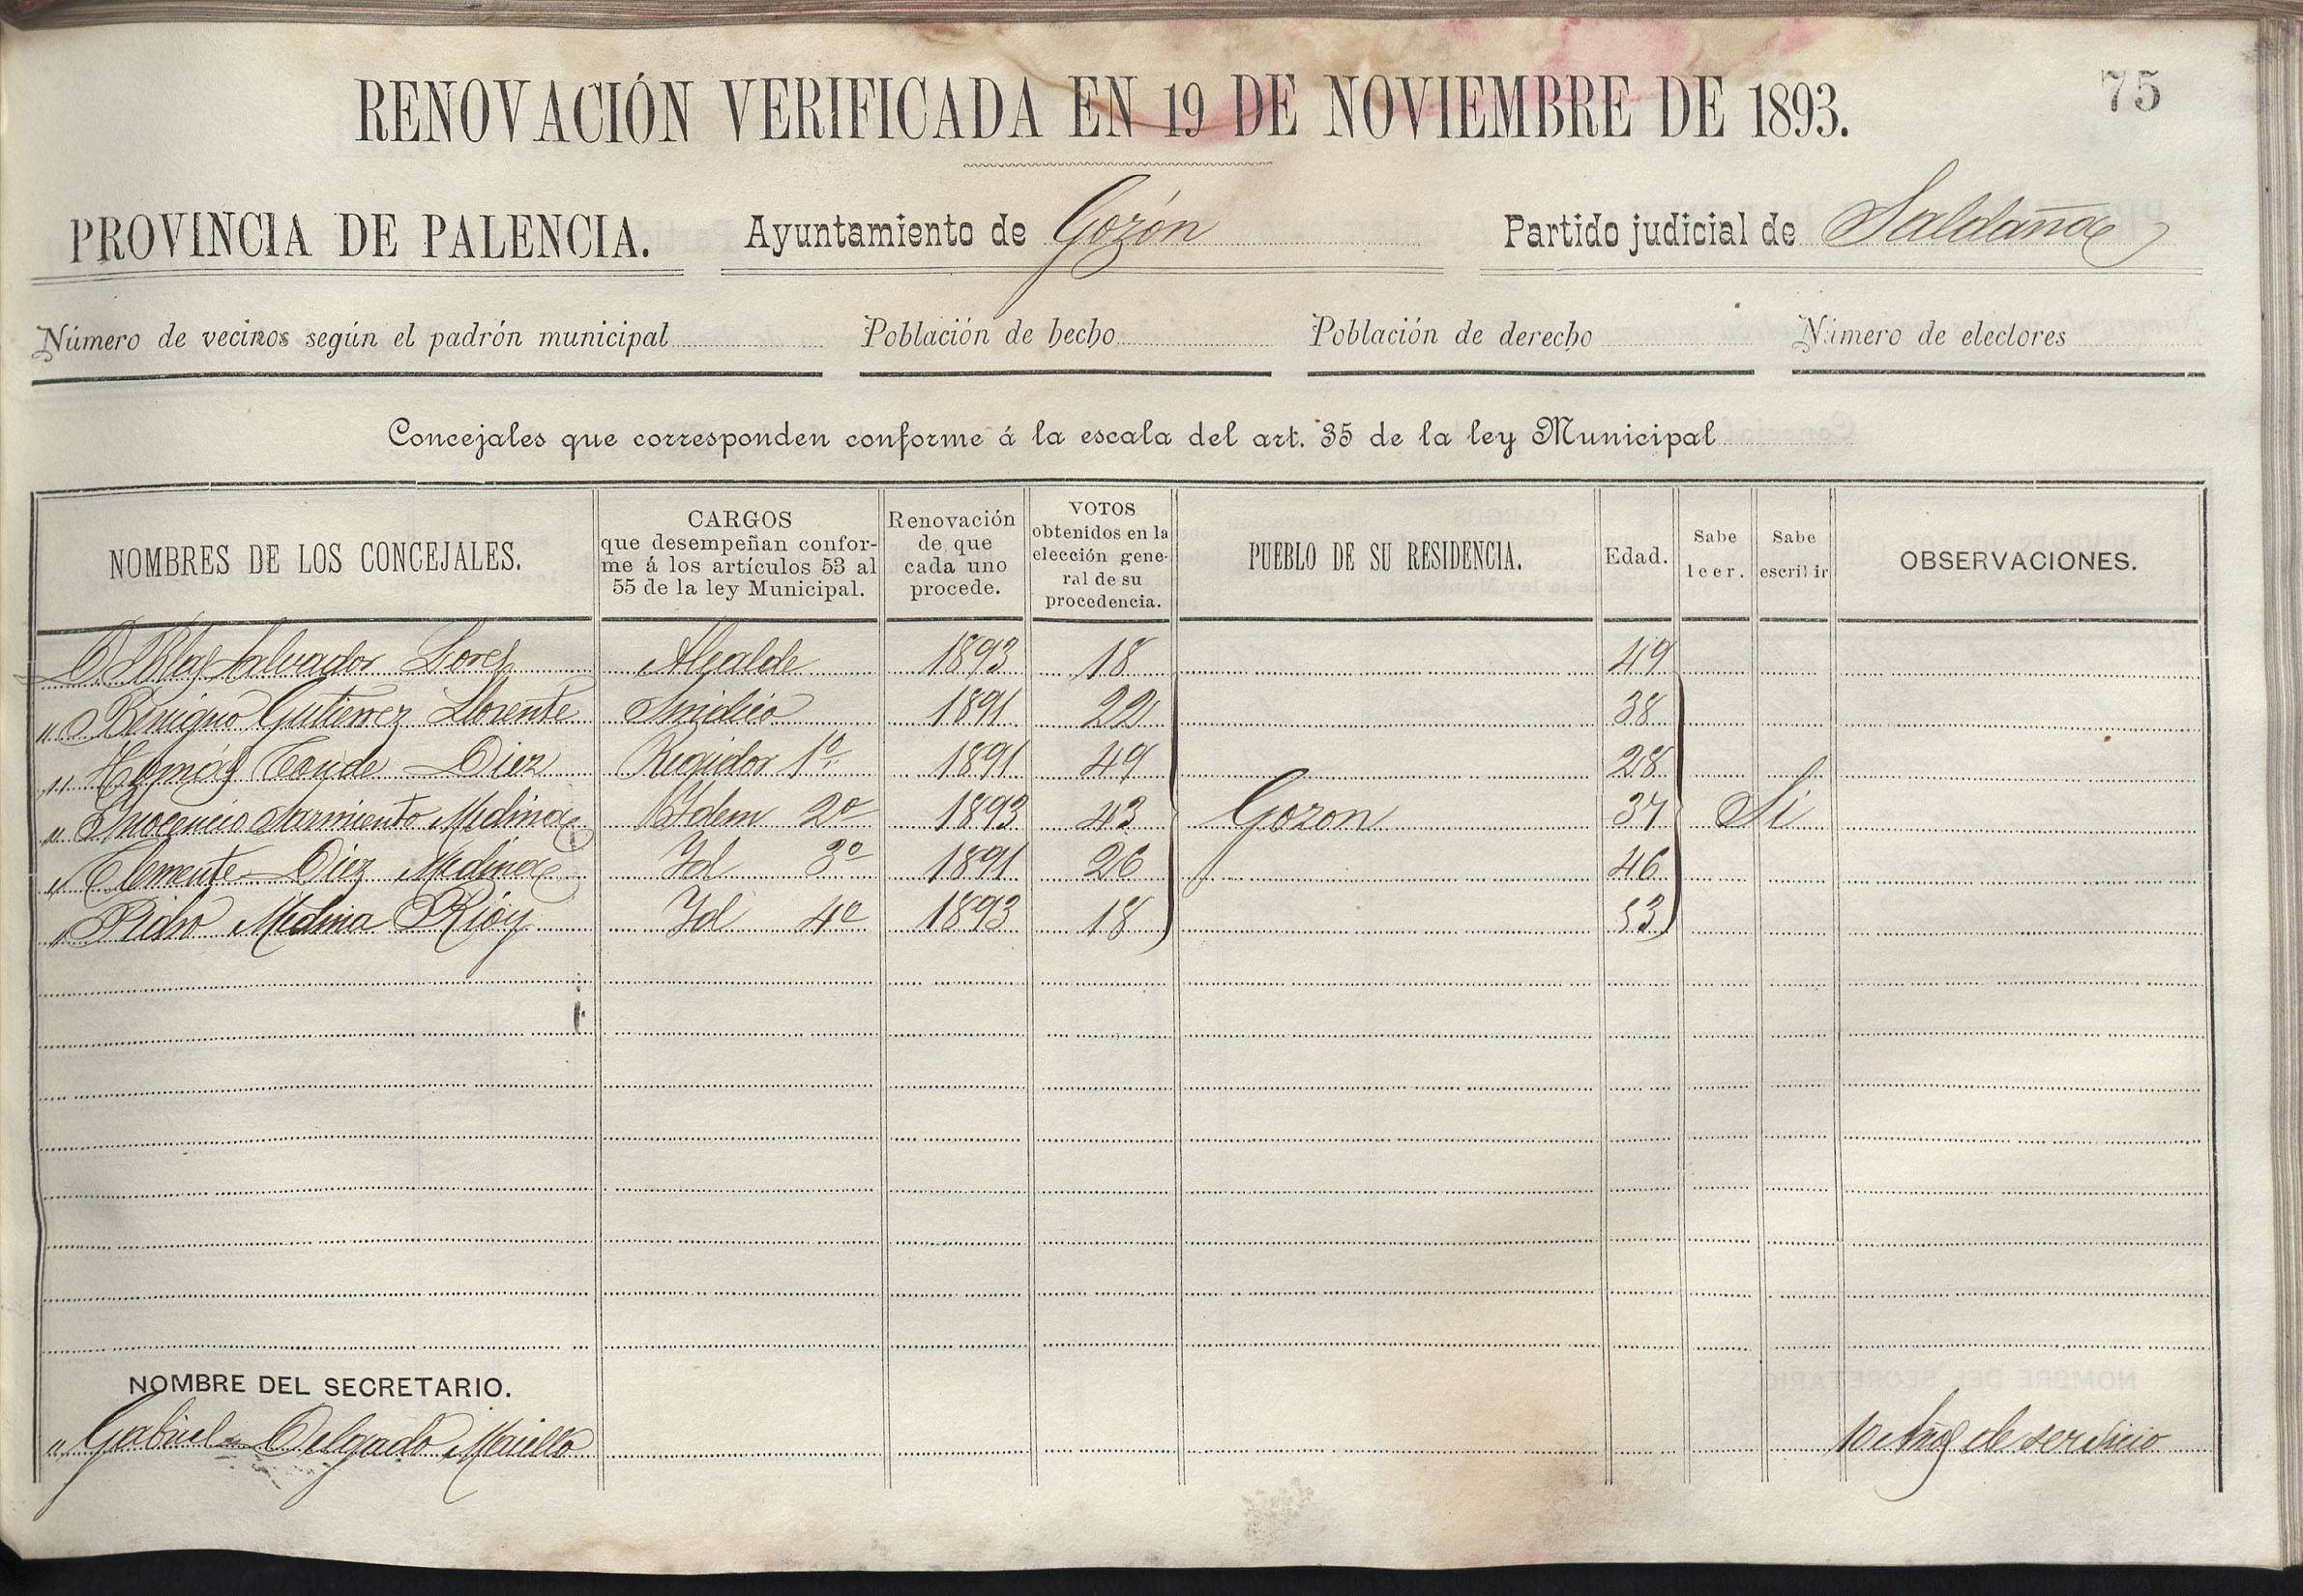 75
RENOVACIÓN VERIFICADA EN 19 DE NOVIEMBRE DE 1893.
PROVINCIA DE PALENCIA. Ayuntamiento de Gozón Partido judicial de Saldaña
Número de vecinos según el padrón municipal Población de hecho Población de derecho Número de electores
Concejales que corresponden conforme á la escala del art. 35 de la ley Municipal
NOMBRES DE LOS CONCEJALES. CARGOS que desempeñan conforme á los artículos 53 al 55 de la ley Municipal. Renovación de que cada uno procede. VOTOS obtenidos en la elección general de su procedencia. PUEBLO DE SU RESIDENCIA. Edad. Sabe leer. Sabe escribir OBSERVACIONES.
D. Blas Salvador Alcalde 1893 18 49
" Benigno Gutierrez Llorente Sindico 1891 22 38
" Conde Diez Regidor 1º 1891 49 28
" Inocencio Sarmiento Medina Idem 2º 1893 43 Gozon 37 Si
" Clemente Diez Medina Id 3º 1891 26 46
" Pedro Medina Id 4º 1893 18 53
NOMBRE DEL SECRETARIO.
" Gabriel Delgado 10 Años de servicio